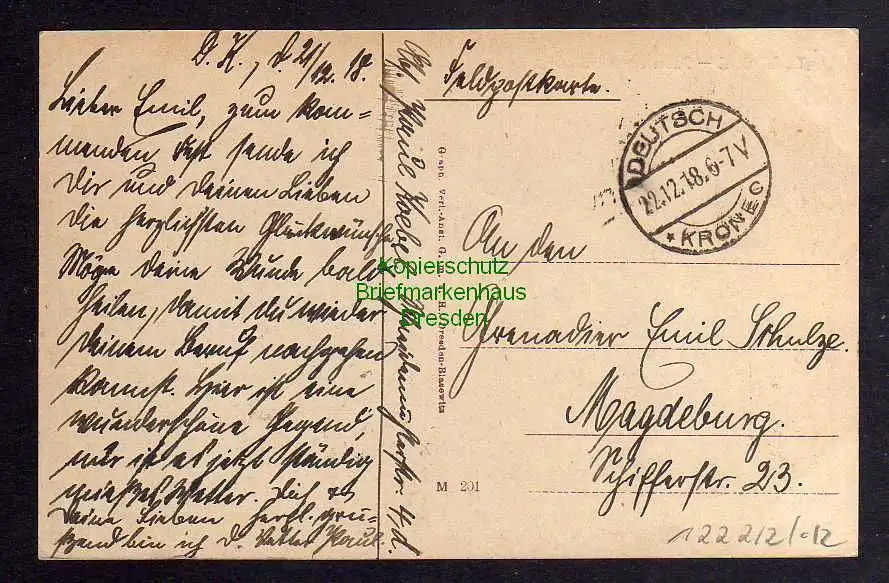 D. K., d. 21/12. 18.
Lieber Emil, zum kom=
menden Fest sende ich
Dir und Deinen Lieben
die herzlichsten Glückwünsche
Möge Deine Wunde bald
heilen, damit Du wieder
Deinem Beruf nachgehen
kannst. Hier ist eine
wunderschöne Gegend,
nur ist es jetzt ständig
Wetter. Dich &
Deine Lieben herzl. grü=
ßend bin ich D. Vetter Paul.
Feldpostkarte.
DEUTSCH
22.12.18.6-7V
* KRONE C
An den
Grenadier Emil Schulze.
Magdeburg.
Schifferstr. 23.
M 201
Kopierschutz
Briefmarkenhaus
Dresden
122212/-12